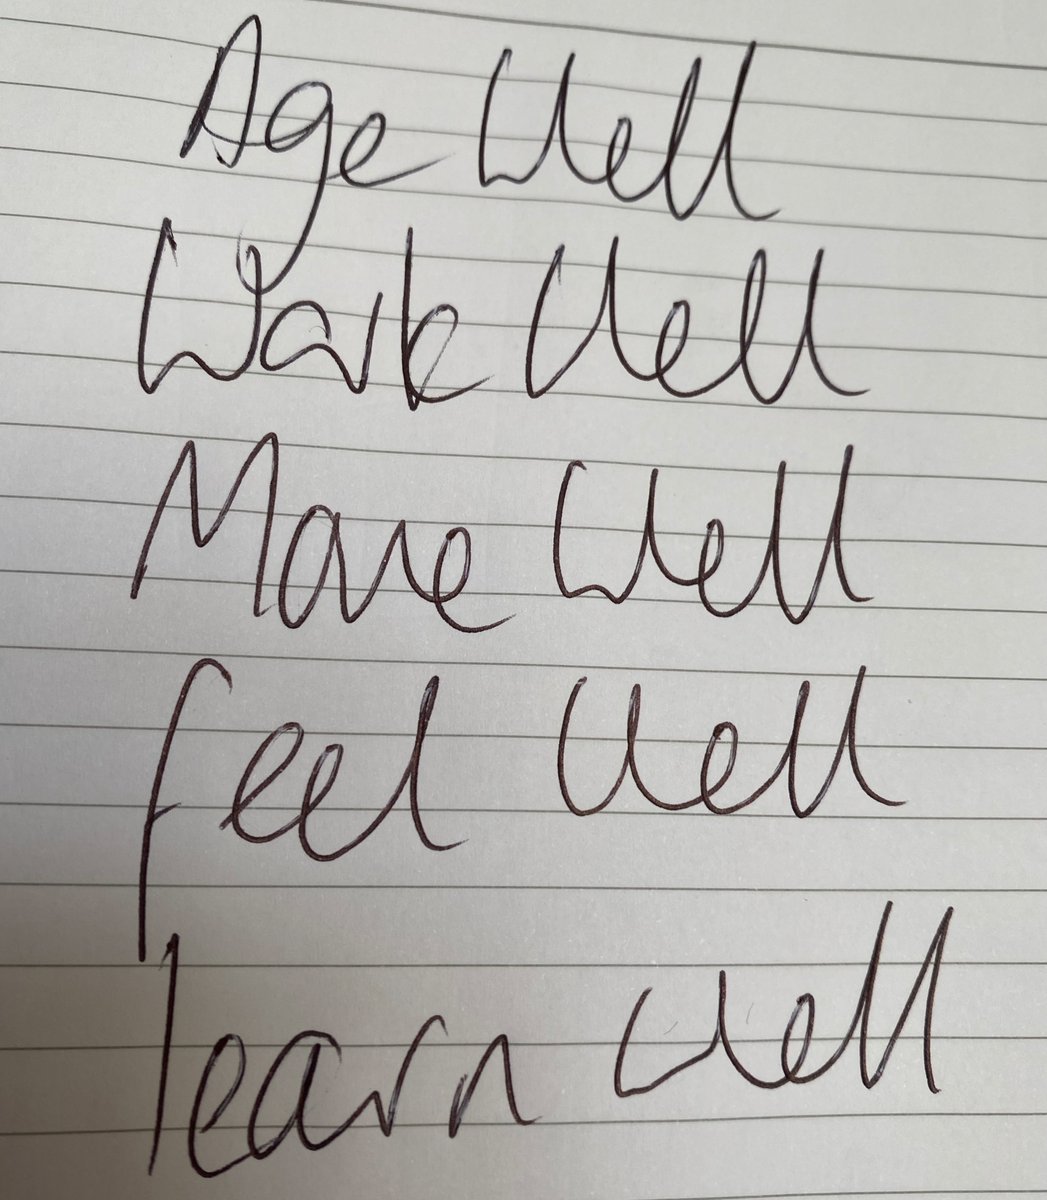 Age Well
Work Well
Move Well
feel Well
learn Well